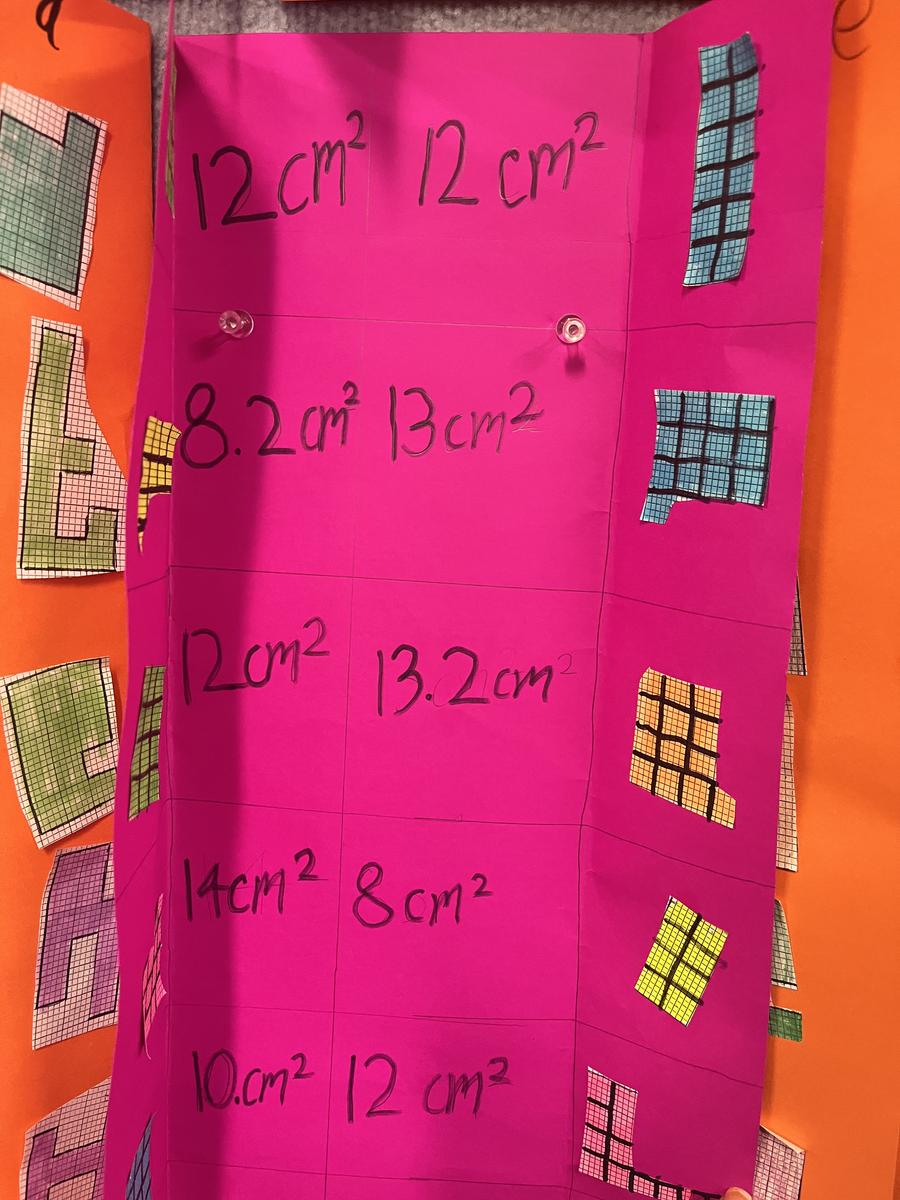 12 cm² 12 cm²
8.2 cm² 13 cm²
12 cm² 13.2 cm²
14 cm² 8 cm²
10. cm² 12 cm²